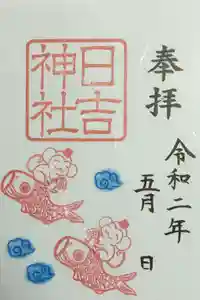 奉拝
令和二年
五月 日
日吉
神社